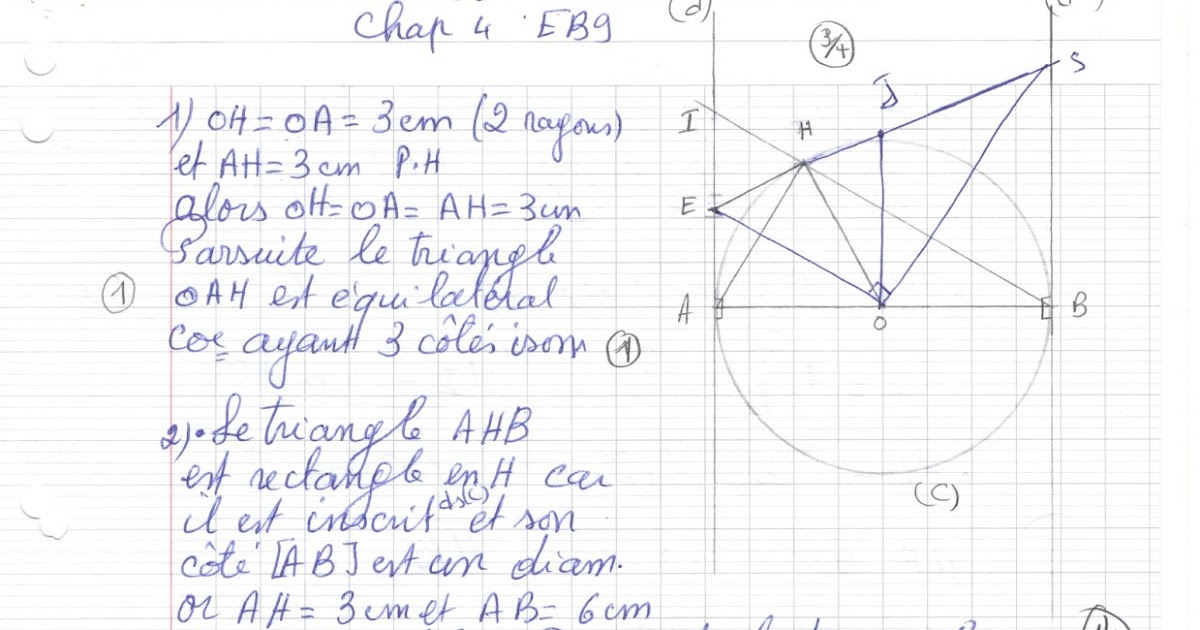 Chap 4 EB9
(d)
3/4
S
J
I
H
E
A
O
B
(C)
1) OH = OA = 3cm (2 rayons)
et AH = 3 cm P.H
alors OH = OA = AH = 3cm
Parsuite le triangle
① OAH est équilatéral
car ayant 3 côtés isom ①
2) • Le triangle AHB
est rectangle en H car
il est inscrit ds(C) et son
côté [AB] est un diam.
or AH = 3 cm et AB = 6 cm